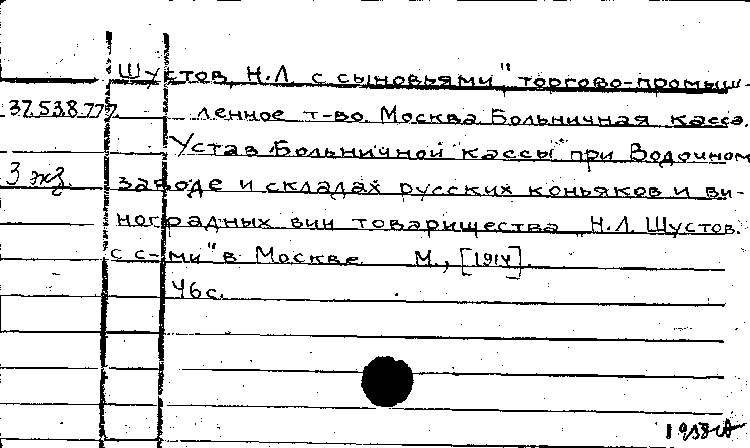 Шустов, Н.Л. с сыновьями" торгово-промыш-
37.538.777. ленное т-во. Москва. Больничная касса.
Устав Больничной кассы при Водочном
3 экз. заводе и складах русских коньяков и ви-
ноградных вин товарищества „Н.Л. Шустов
с с-ми" в Москве. М., [1914].
46 с.